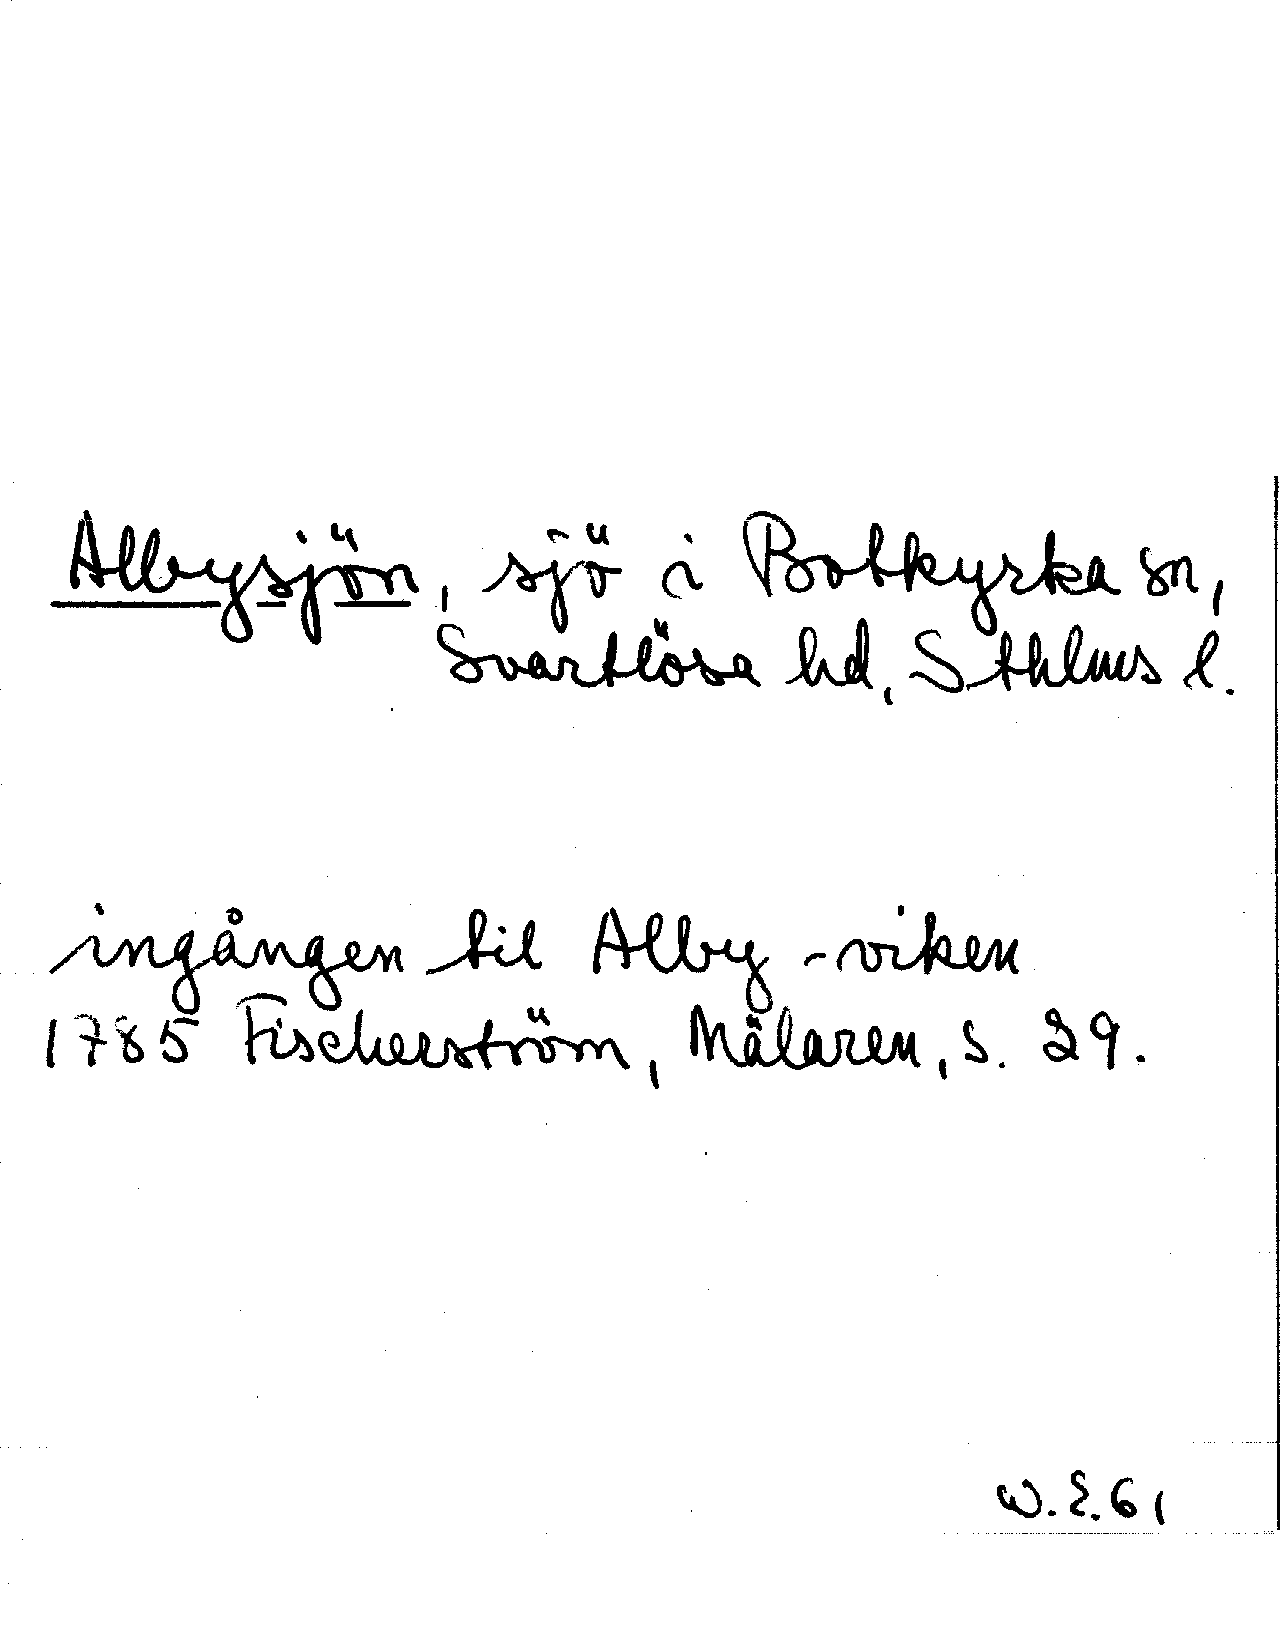 Albysjön, sjö i Botkyrka sn,
Svartlösa hd, Sthlms l.
ingången til Alby-viken
1785 Fischerström, Mälaren, s. 29.
W.E.61